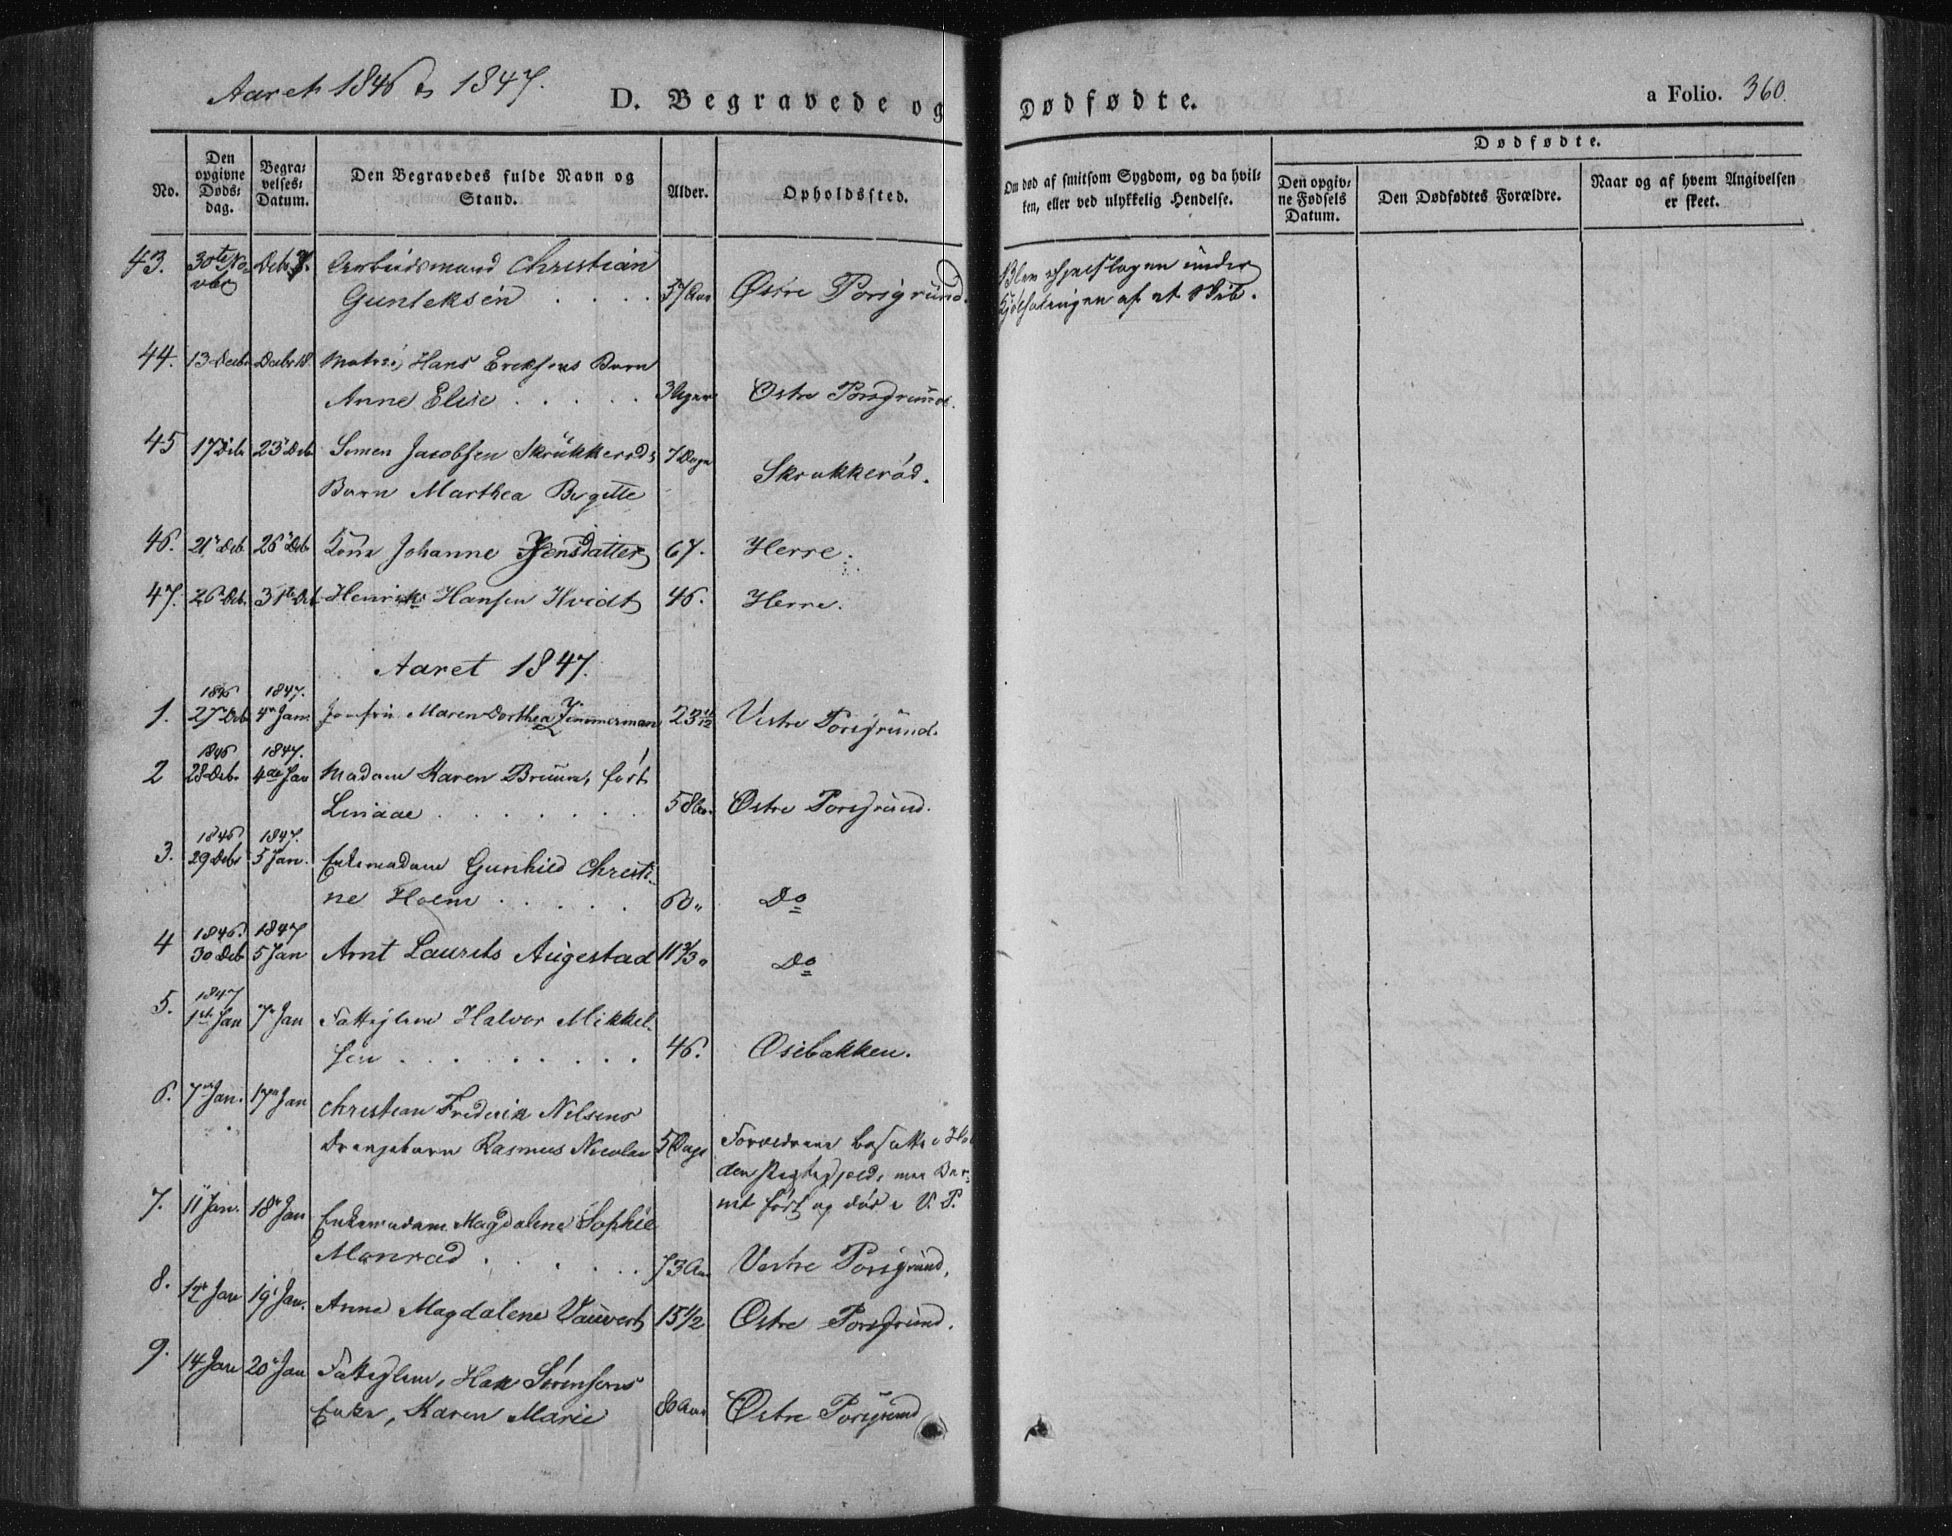 Aaret 1846 & 1847.
D. Begravede og Dødfødte.
a Folio. 360.
No.
Den opgivne Døds-dag.
Begra-velses-Datum.
Den Begravedes fulde Navn og Stand.
Alder.
Opholdssted.
Om død af smitsom Sygdom, og da hvil-
ken, eller ved ulykkelig Hendelse.
Dødfødte.
Den opgiv-ne Fødsels Datum.
Den Dødfødtes Forældre.
Naar og af hvem Angivelsen er skeet.
43. 30te No- Debr 7. Arbeidsmand Christian
vbr Gunleksen . . . . 37 Aar Østre Porsgrund.
Blev ihjelslagen under
Kjølhalingen af et Skib.
44. 13 Decbr Decbr 18. Matros Hans Ereksens Barn
Anne Elise . . . . . 3 Uger Østre Porsgrund.
45 17 Debr 23 Debr Simen Jacobsen Skrukkerøds 7 Dage
Barn Marthea Birgitte Skrukkerød.
46. 21 Deb 26 Deb Kone Johanne Jensdatter 67. Herre.
47. 26 Deb. 31te Deb Henrik Hansen Hvidt 46. Herre.
Aaret 1847.
1846 1847.
1. 27 Deb 4 Jan. Jomfru Maren Dorthea Zimmerman 23 Vestre Porsgrund.
1846 1847.
2 28 Debr 4de Jan Madam Karen Bruun, født
Linaae . . . . . . . 58 Aar. Østre Porsgrund.
1846 1847.
3. 29 Debr 5 Jan. Enkemadam Gunhild Christi-
ne Holm . . . . . 60 " Do
1846. 1847
4 30 Deb 5 Jan Arnt Laurits Augestad 11 Do
1847
5. 1ste Jan 7 Jan Fattiglem Halvor Mikkel-
sen . . . . . . . . 46. Osebakken.
6. 7 Jan. 17 Jan Christian Frederik Nilsens
Drengebarn Rasmus Nicolai 5 Dage Forældrene bosatte i
den Præstegjeld, men Bar-
net født og død i V. P.
7. 11 Jan. 18 Jan Enkemadam Magdalene Sophie
Monrad . . . . . . 73 Aar Vestre Porsgrund.
8. 14 Jan 19 Jan. Anne Magdalene Vauvert 15 1/2 Østre Porsgrund.
9. 14 Jan 20 Jan Fattiglem, Hans Sørensens
Enke, Karen Marie 80 Aar Østre Porsgrund